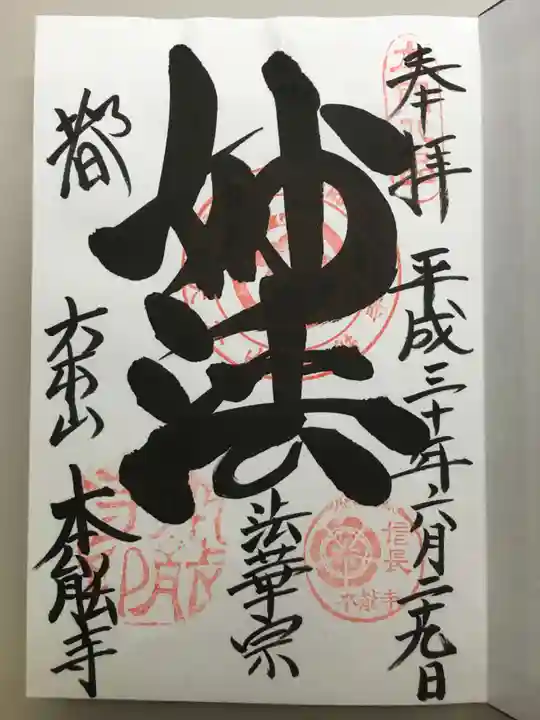 奉拝
平成三十年六月二十九日
妙法
法華宗
都
大本山
本能寺
信長
本能寺